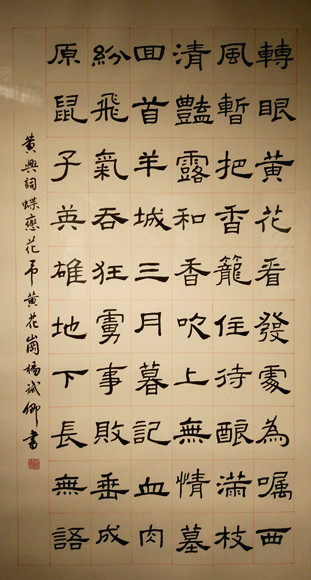 轉眼黃花看發處為囑西
風暫把香籠住待釀滿枝
清豔露和香吹上無情墓
回首羊城三月暮記血肉
紛飛氣吞狂虜事敗垂成
原鼠子英雄地下長無語
黃興詞蝶戀花弔黃花崗楊試卿書